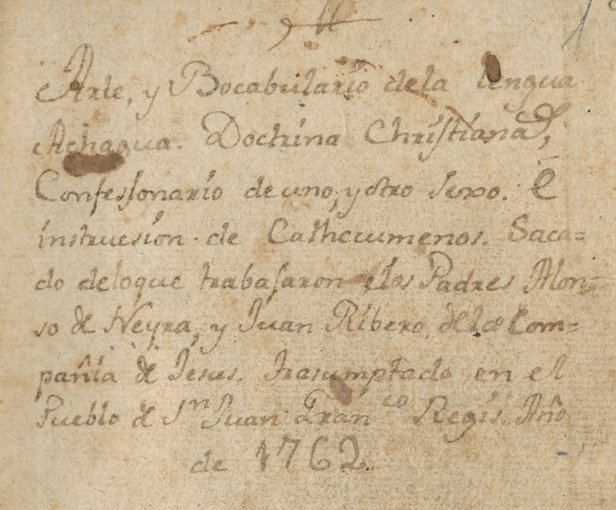 Arte, y Bocabulario de la lengua
Achagua. Doctrina Christiana,
Confessonario de uno, y otro sexo. E
instrucsion de Cathecumenos. Saca=
do deloque trabajaron los Padres Alon-
so de Neyra, y Juan Ribero, de la Com-
pañia de Jesus. trasumptado en el
Pueblo de Sn Juan Franco Regis. Año
de 1762.